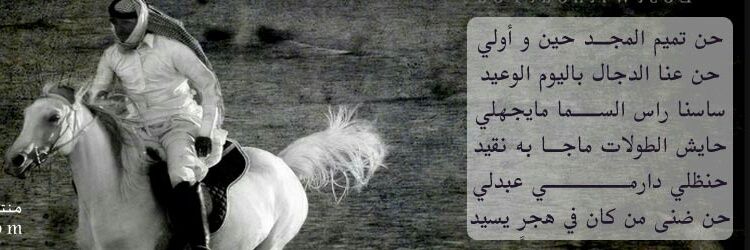 حن تميم المجـــد حين و أولي
حن عنا الدجال باليوم الوعيد
ساسنا راس الســـما مايجهلي
حايش الطولات ماجـا به نقيد
حنظلي دارمــــــــي عبدلي
حن ضنى من كان في هجرٍ يسيد
منتـ
o m